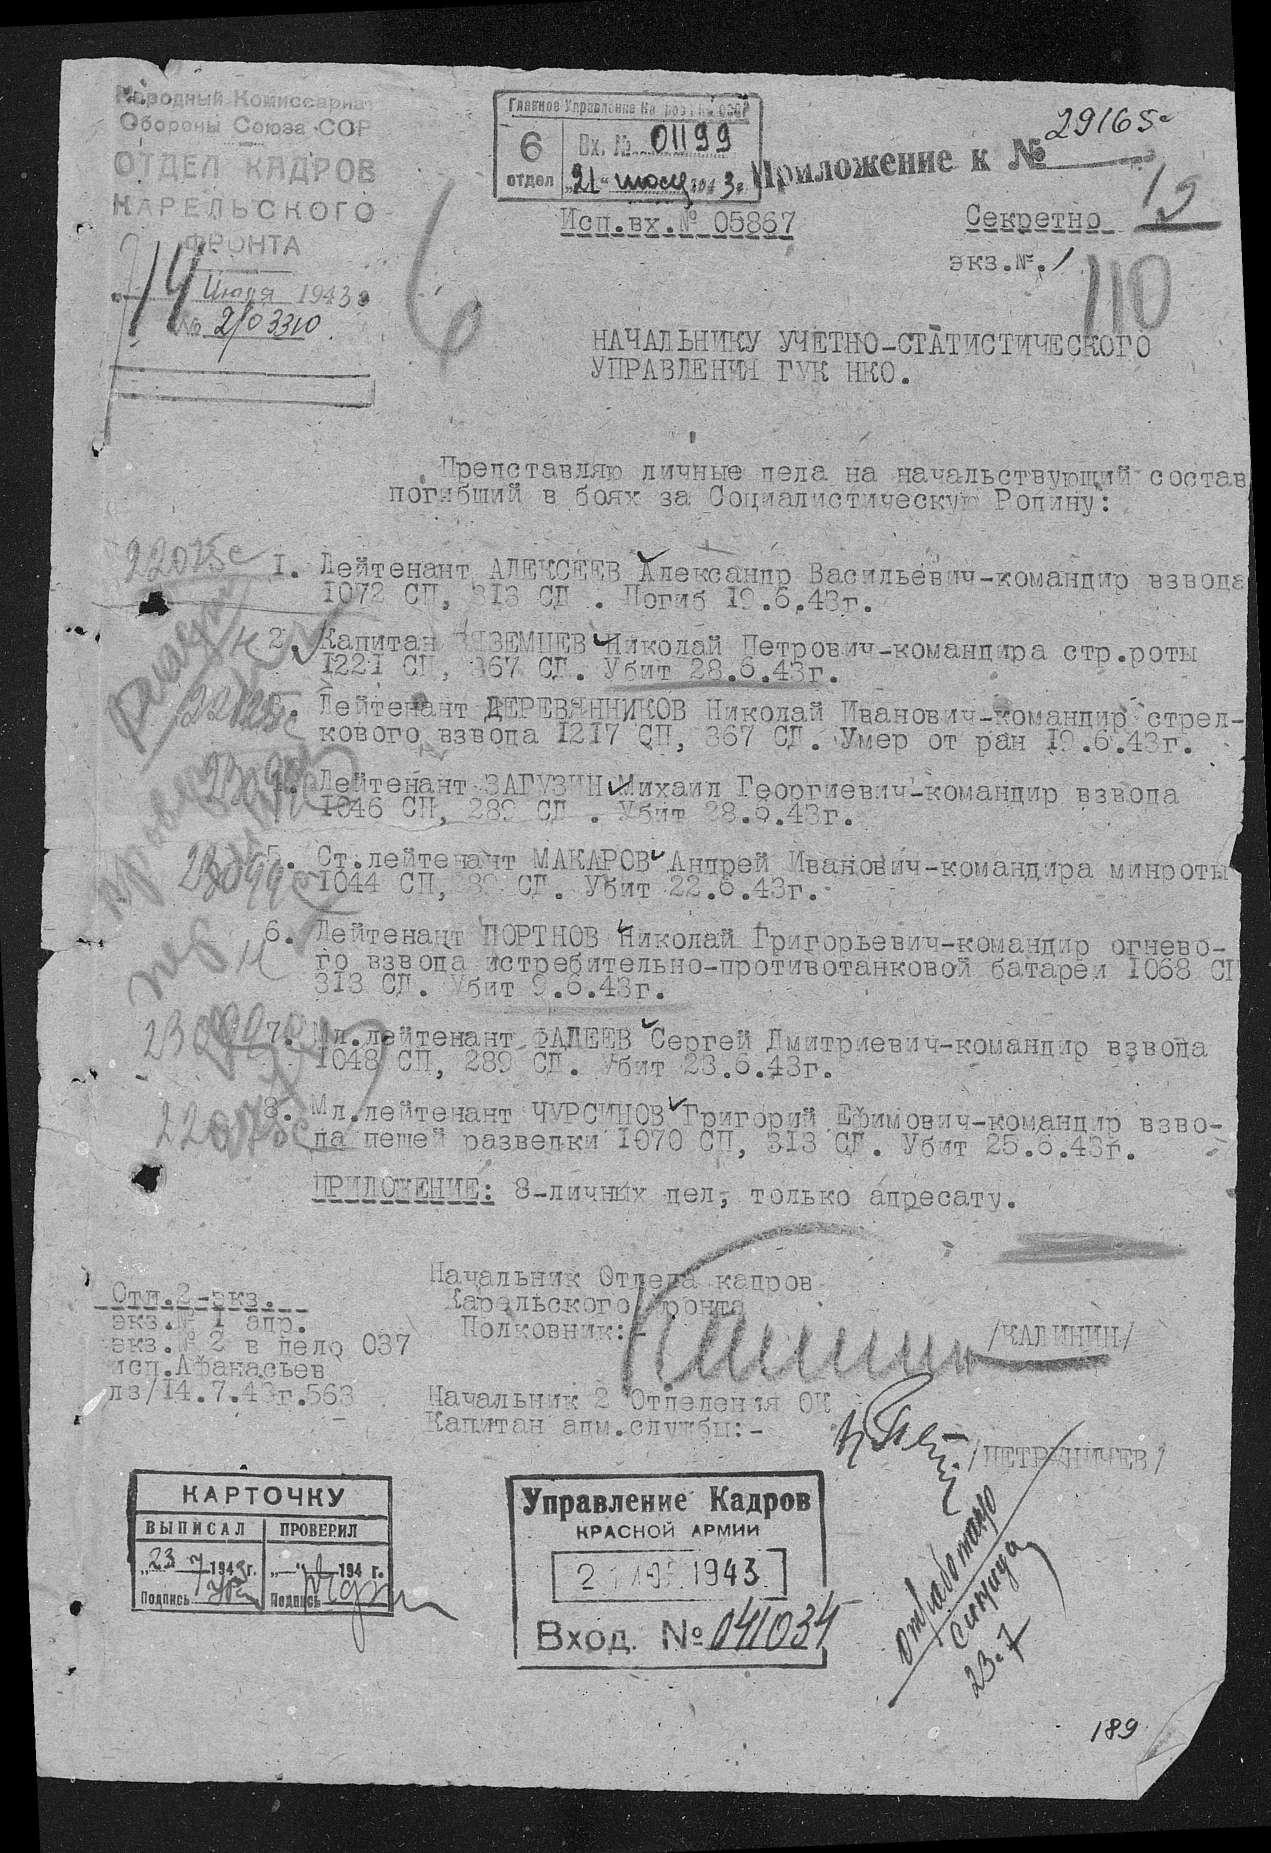 Народный Комиссариат
Обороны Союза ССР
ОТДЕЛ КАДРОВ
КАРЕЛЬСКОГО
ФРОНТА
14 Июля 1943г
№ 2/03310
6
110
Вх. № 01199
6 отдел
„21“ 1943г.
Приложение к № 29165с
Исп.вх.№ 05867
Секретно
экз.№.1
НАЧАЛЬНИКУ УЧЕТНО-СТАТИСТИЧЕСКОГО
УПРАВЛЕНИЯ ГУК НКО.
Представляю личные дела на начальствующий состав
погибший в боях за Социалистическую Родину:
22075с
I. Лейтенант АЛЕКСЕЕВ Александр Васильевич-командир взвода
1072 СП, 313 СД . Погиб 19.6.43г.
2. Капитан ВЯЗЕМЦЕВ Николай Петрович-командира стр.роты
1221 СП, 367 СД. Убит 28.6.43г.
3. Лейтенант ДЕРЕВЯННИКОВ Николай Иванович-командир стрел-
кового взвода 1217 СП, 367 СД. Умер от ран 19.6.43г.
4. Лейтенант ЗАГУЗИН Михаил Георгиевич-командир взвода
1046 СП, 289 СД . Убит 28.6.43г.
5. Ст.лейтенант МАКАРОВ Андрей Иванович-командира минроты
1044 СП, 289 СД. Убит 22.6.43г.
6. Лейтенант ПОРТНОВ Николай Григорьевич-командир огнево-
го взвода истребительно-противотанковой батареи 1068 СП
313 СД. Убит 9.6.43г.
7. Мл.лейтенант ФАДЕЕВ Сергей Дмитриевич-командир взвода
1048 СП, 289 СД. Убит 23.6.43г.
8. Мл.лейтенант ЧУРСИНОВ Григорий Ефимович-командир взво-
да пешей разведки 1070 СП, 313 СД. Убит 25.6.43г.
ПРИЛОЖЕНИЕ: 8-личных дел, только адресату.
Начальник Отдела кадров
Карельского фронта
Полковник:- /КАЛИНИН/
Отп.2-экз.
экз.№ I адр.
экз.№ 2 в дело 037
исп.Афанасьев
лз/14.7.43г.563
Начальник 2 Отделения ОК
Капитан адм.службы:-
/ПЕТРАНИЧЕВ/
КАРТОЧКУ
ВЫПИСАЛ ПРОВЕРИЛ
„23 7 1943г. „—“ 194 г.
Подпись Подпись
Управление Кадров
КРАСНОЙ АРМИИ
1943
Вход. № 041034
отработано
23.7
189